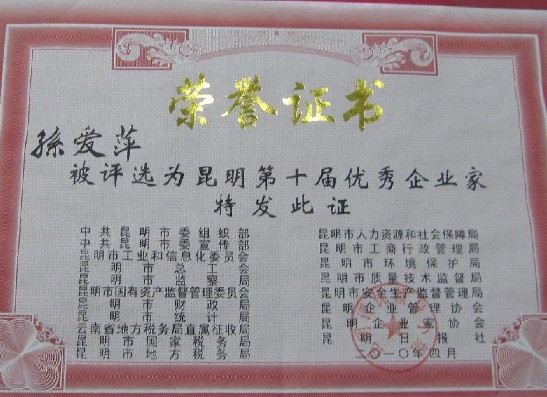 荣誉证书
孫爱萍
被评选为昆明第十届优秀企业家
特发此证
中共昆明市委组织部
中共昆明市委宣传部
昆明市工业和信息化委员会
昆明市总工会
昆明市监察局
昆明市国有资产监督管理委员会
昆明市财政局
昆明市统计局
云南省地方税务局直属征收局
昆明市国家税务局
昆明市地方税务局
昆明市人力资源和社会保障局
昆明市工商行政管理局
昆明市环境保护局
昆明市质量技术监督局
昆明市安全生产监督管理局
昆明企业管理协会
昆明企业家协会
昆明日报社
二〇一〇年四月